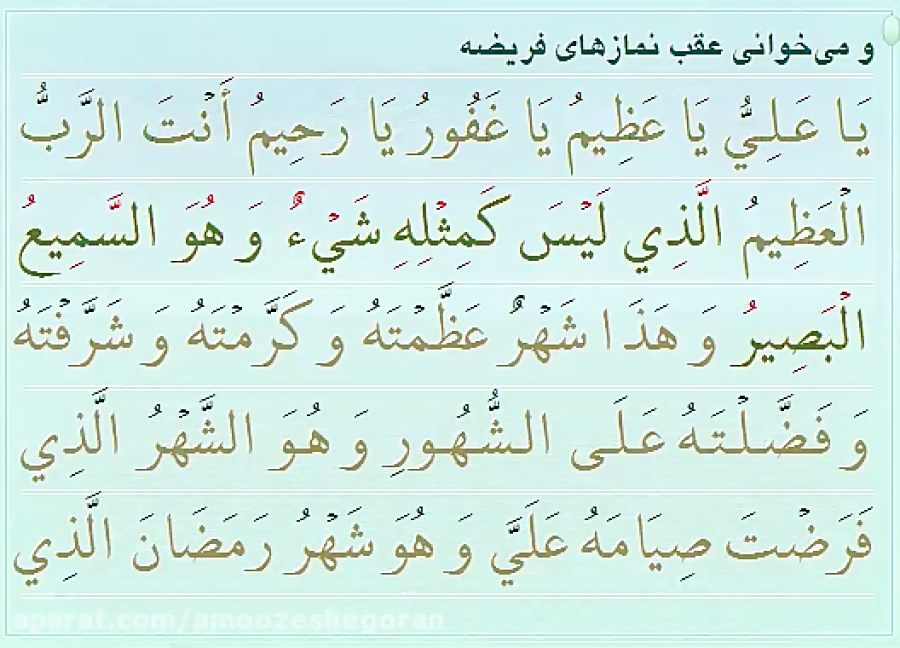 و می‌خوانی عقب نمازهای فریضه
يَا عَلِيُّ يَا عَظِيمُ يَا غَفُورُ يَا رَحِيمُ أَنْتَ الرَّبُّ
الْعَظِيمُ الَّذِي لَيْسَ كَمِثْلِهِ شَيْءٌ وَ هُوَ السَّمِيعُ
الْبَصِيرُ وَ هَذَا شَهْرٌ عَظَّمْتَهُ وَ كَرَّمْتَهُ وَ شَرَّفْتَهُ
وَ فَضَّلْتَهُ عَلَى الشُّهُورِ وَ هُوَ الشَّهْرُ الَّذِي
فَرَضْتَ صِيَامَهُ عَلَيَّ وَ هُوَ شَهْرُ رَمَضَانَ الَّذِي
aparat.com/amoozeshegoran